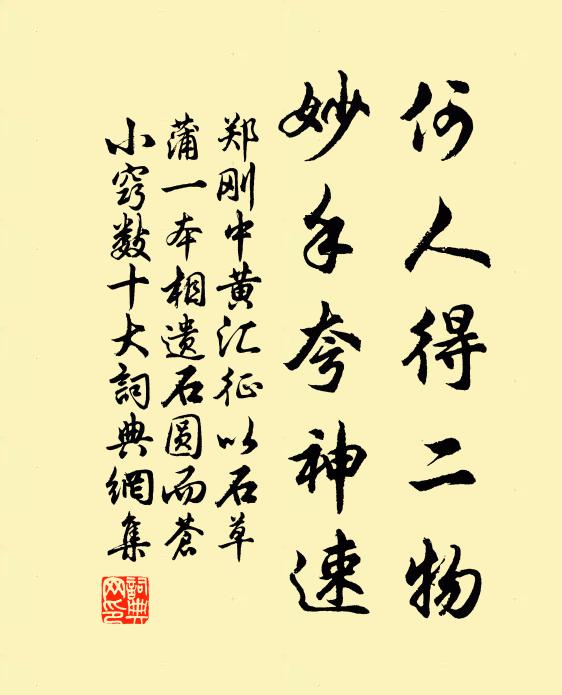 何人得二物
妙手夸神速
郑刚中黄汇征以石草
蒲一本相遗石圆而苍
小窍数十大詞典網集
詞典
网印